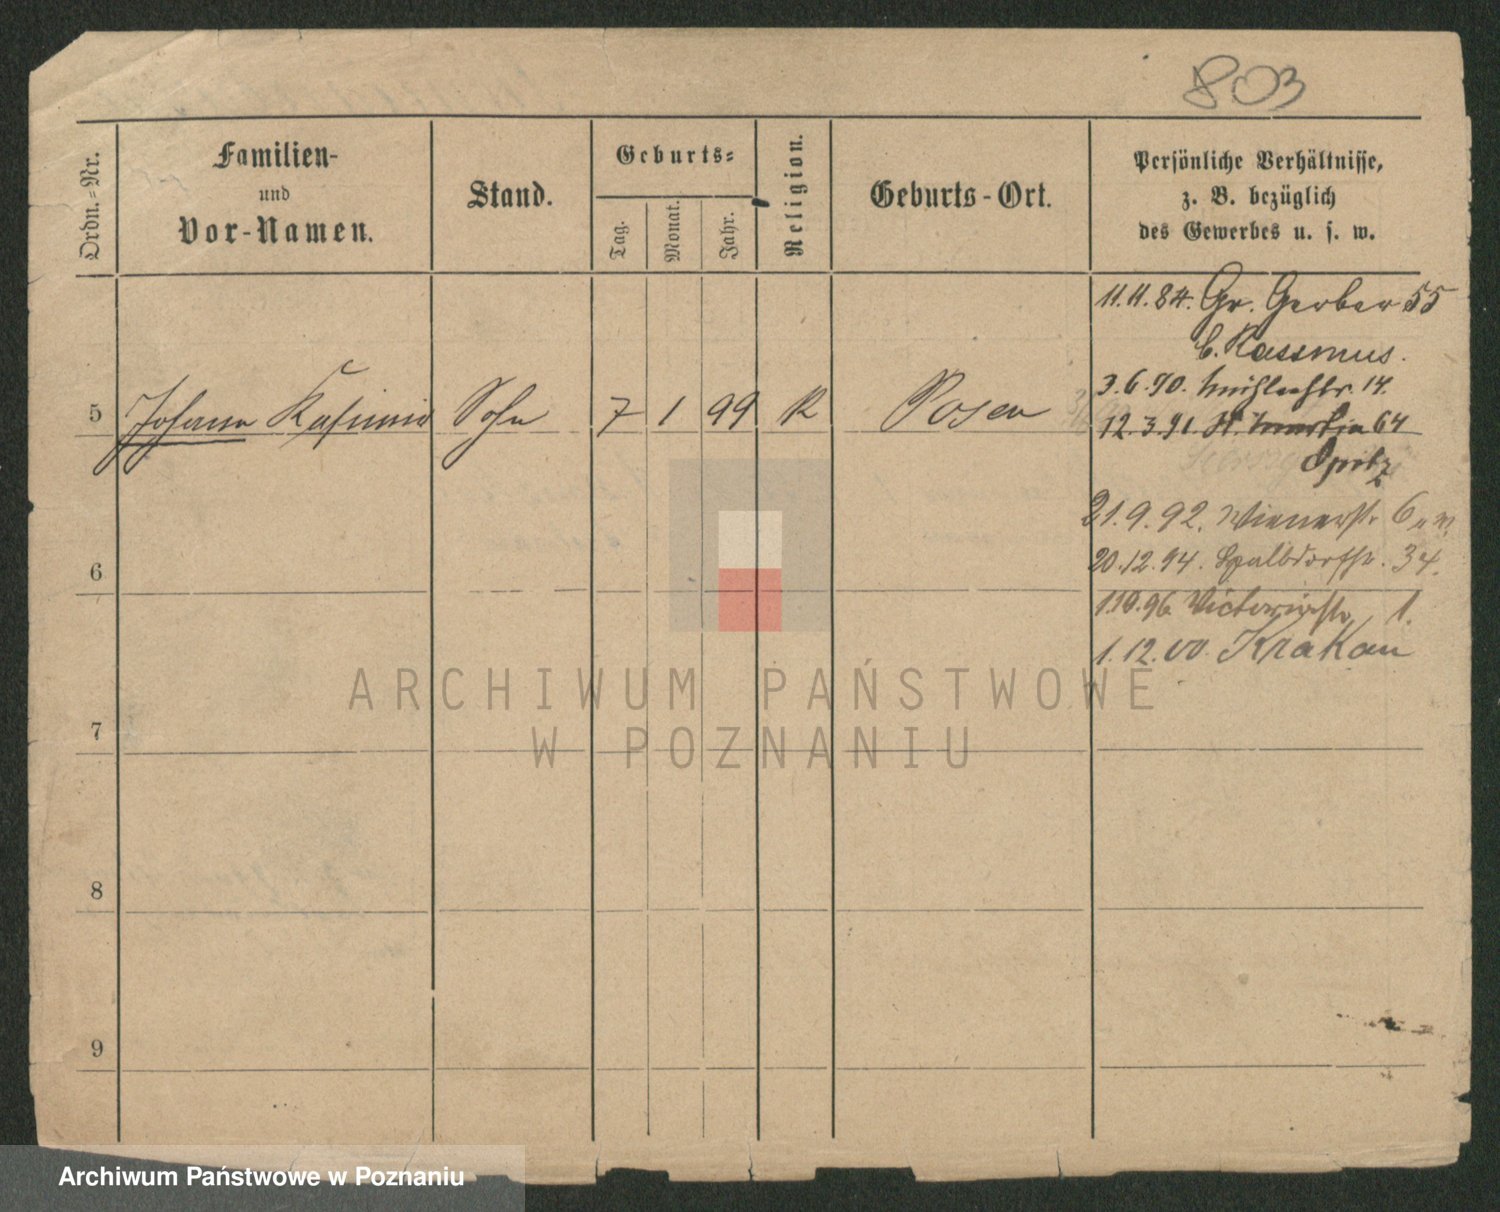 803
Ordn.-Nr.
Familien-
und
Vor-Namen.
Stand.
Geburts-
Tag.
Monat.
Jahr.
Religion.
Geburts-Ort.
Persönliche Verhältnisse,
z. B. bezüglich
des Gewerbes u. s. w.
11.11.84. Gr. Gerber 55
b. Rassmus.
3.6.90. 14.
5 Johann Kasimir Sohn 7 1 99 K Posen
12.3.91. St. Martin 64
Opitz
21.9.92. Wienerstr 6
6
20.12.94. 34.
1.10.96 Victoriastr 1.
1.12.00. Krakau
ARCHIWUM PAŃSTWOWE
W POZNANIU
7
8
9
Archiwum Państwowe w Poznaniu